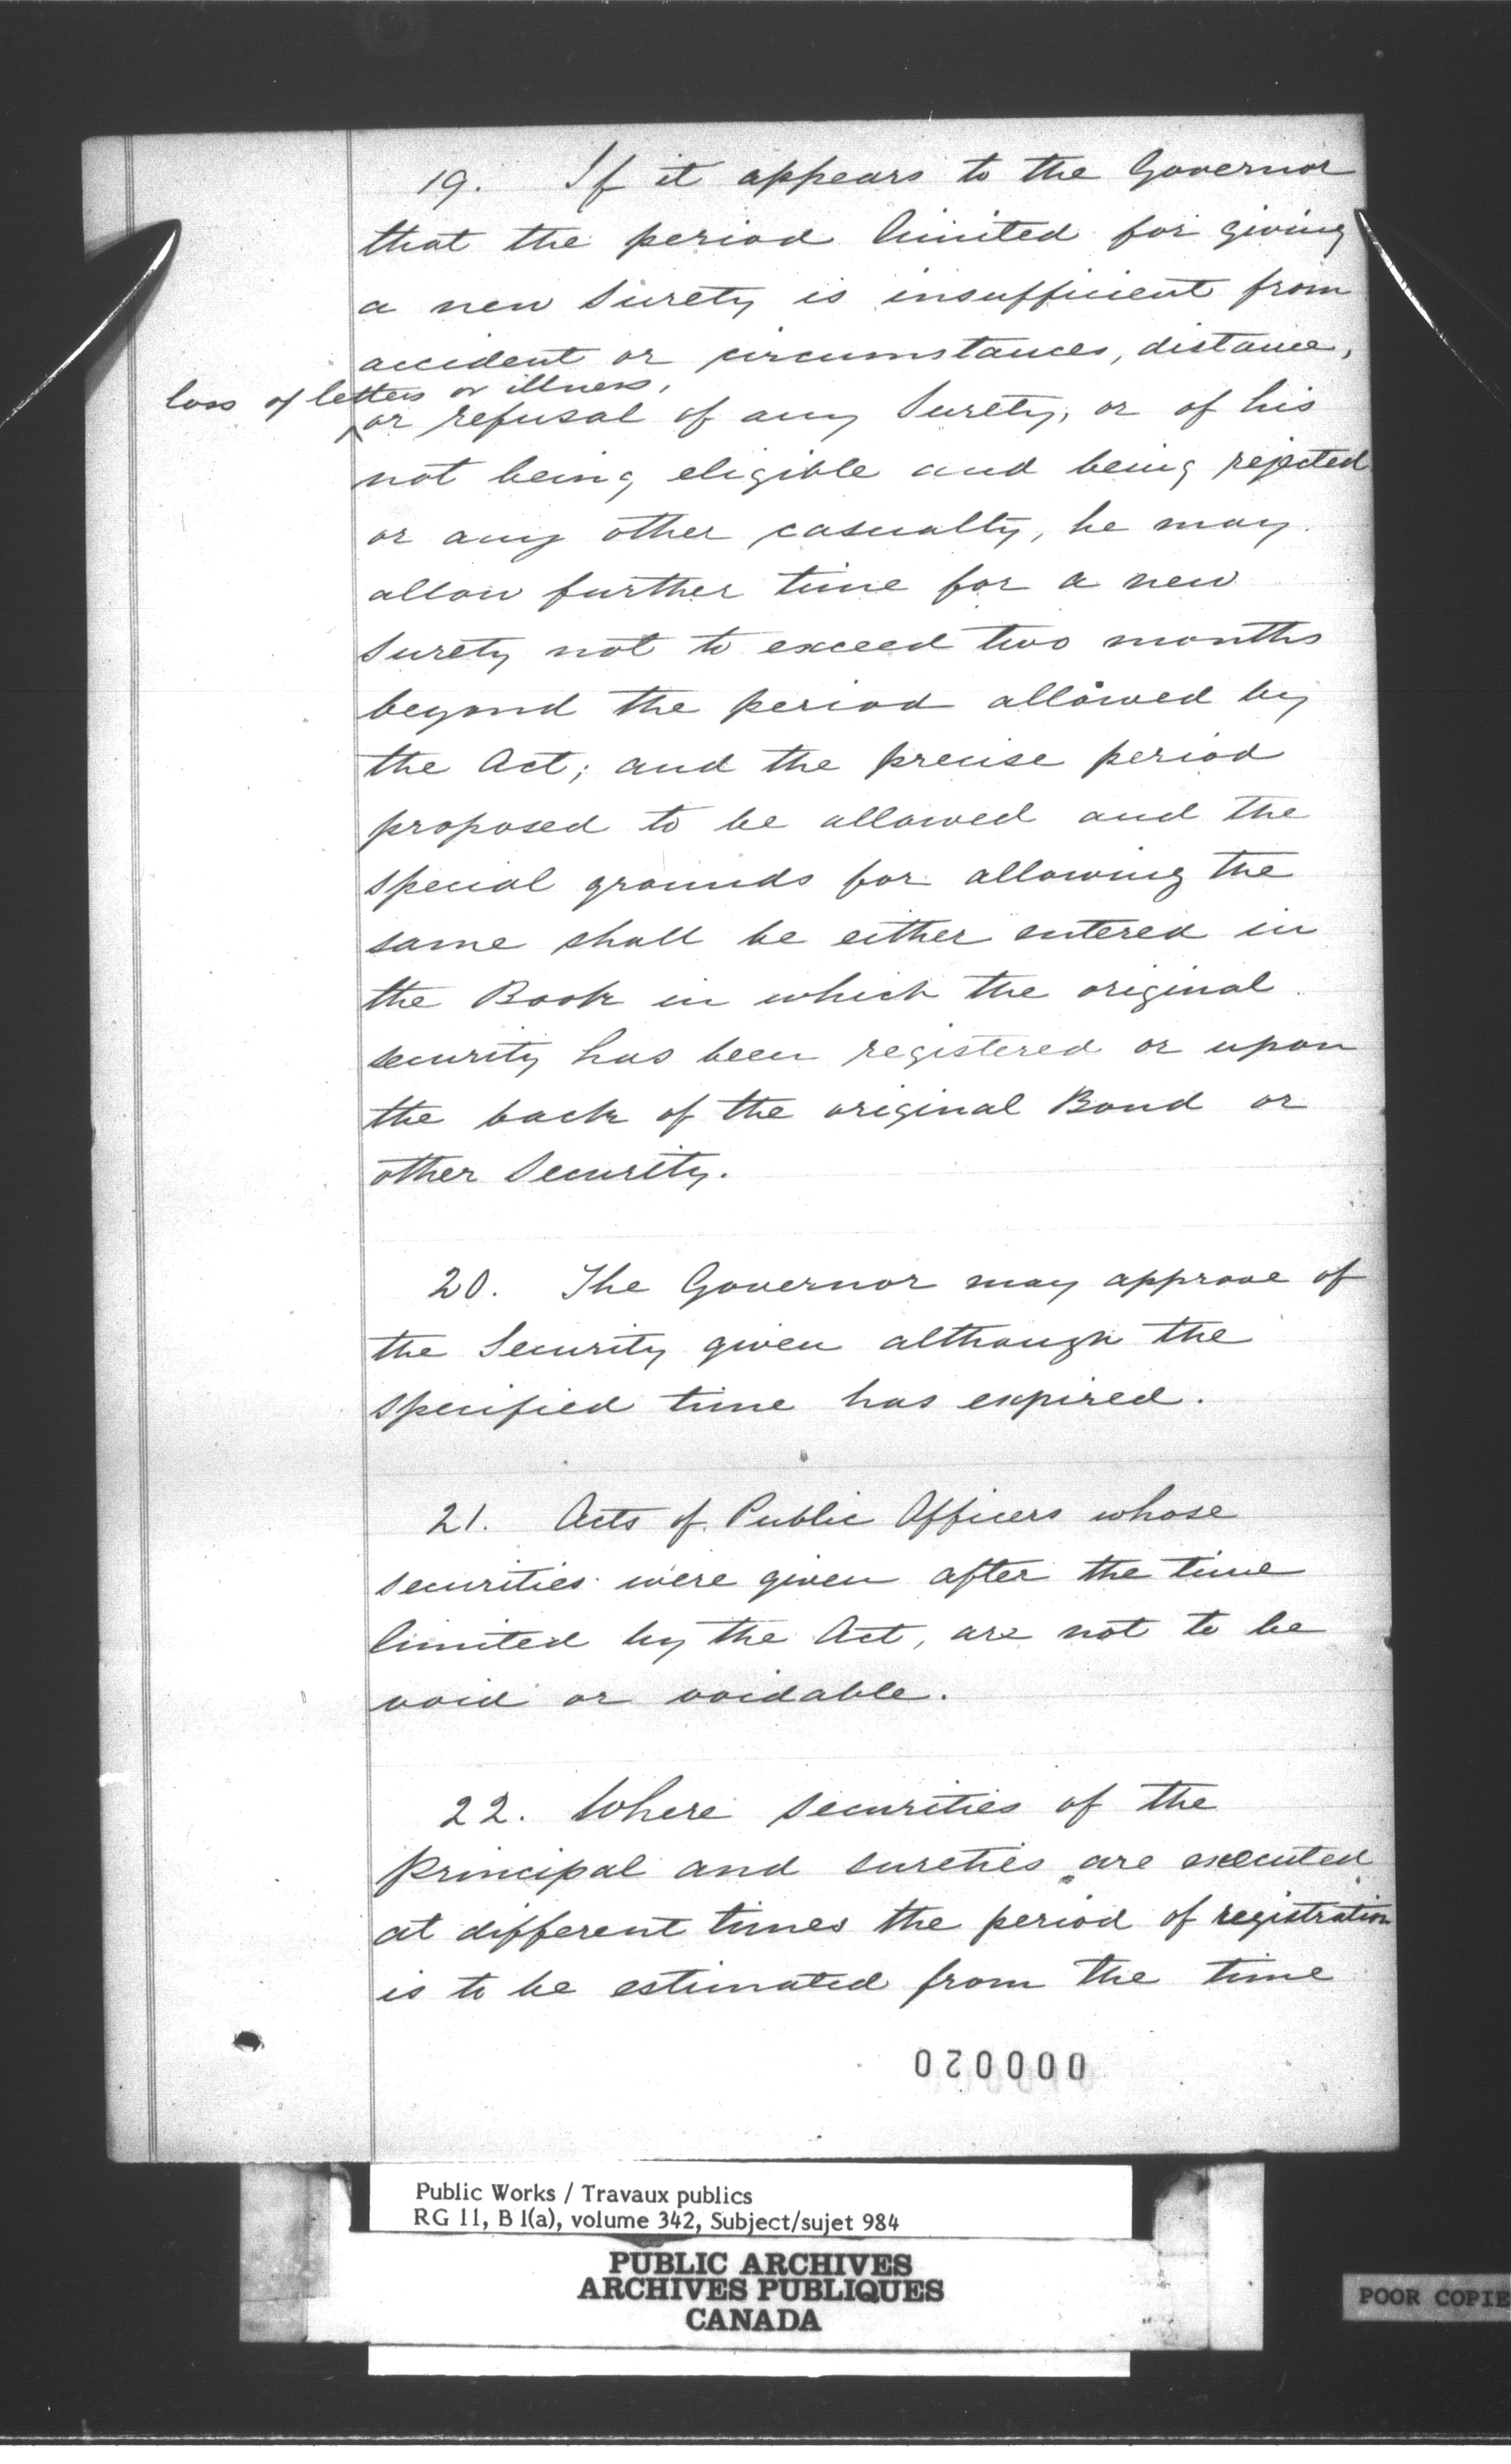 19. If it appears to the Governor
that the period limited for giving
a new Surety is insufficient from
accident or circumstances, distance,
loss of letters or illness,
or refusal of any Surety, or of his
not being eligible and being rejected
or any other casualty, he may
allow further time for a new
Surety not to exceed two months
beyond the period allowed by
the Act; and the precise period
proposed to be allowed and the
special grounds for allowing the
same shall be either entered in
the Book in which the original
security has been registered or upon
the back of the original Bond or
other Security.
20. The Governor may approve of
the Security given although the
specified time has expired.
21. Acts of Public Officers whose
securities were given after the time
limited by the Act, are not to be
void or voidable.
22. Where securities of the
Principal and sureties are executed
at different times the period of registration
is to be estimated from the time
000020
Public Works / Travaux publics
RG 11, B 1(a), volume 342, Subject/sujet 984
PUBLIC ARCHIVES
ARCHIVES PUBLIQUES
CANADA
POOR COPIE